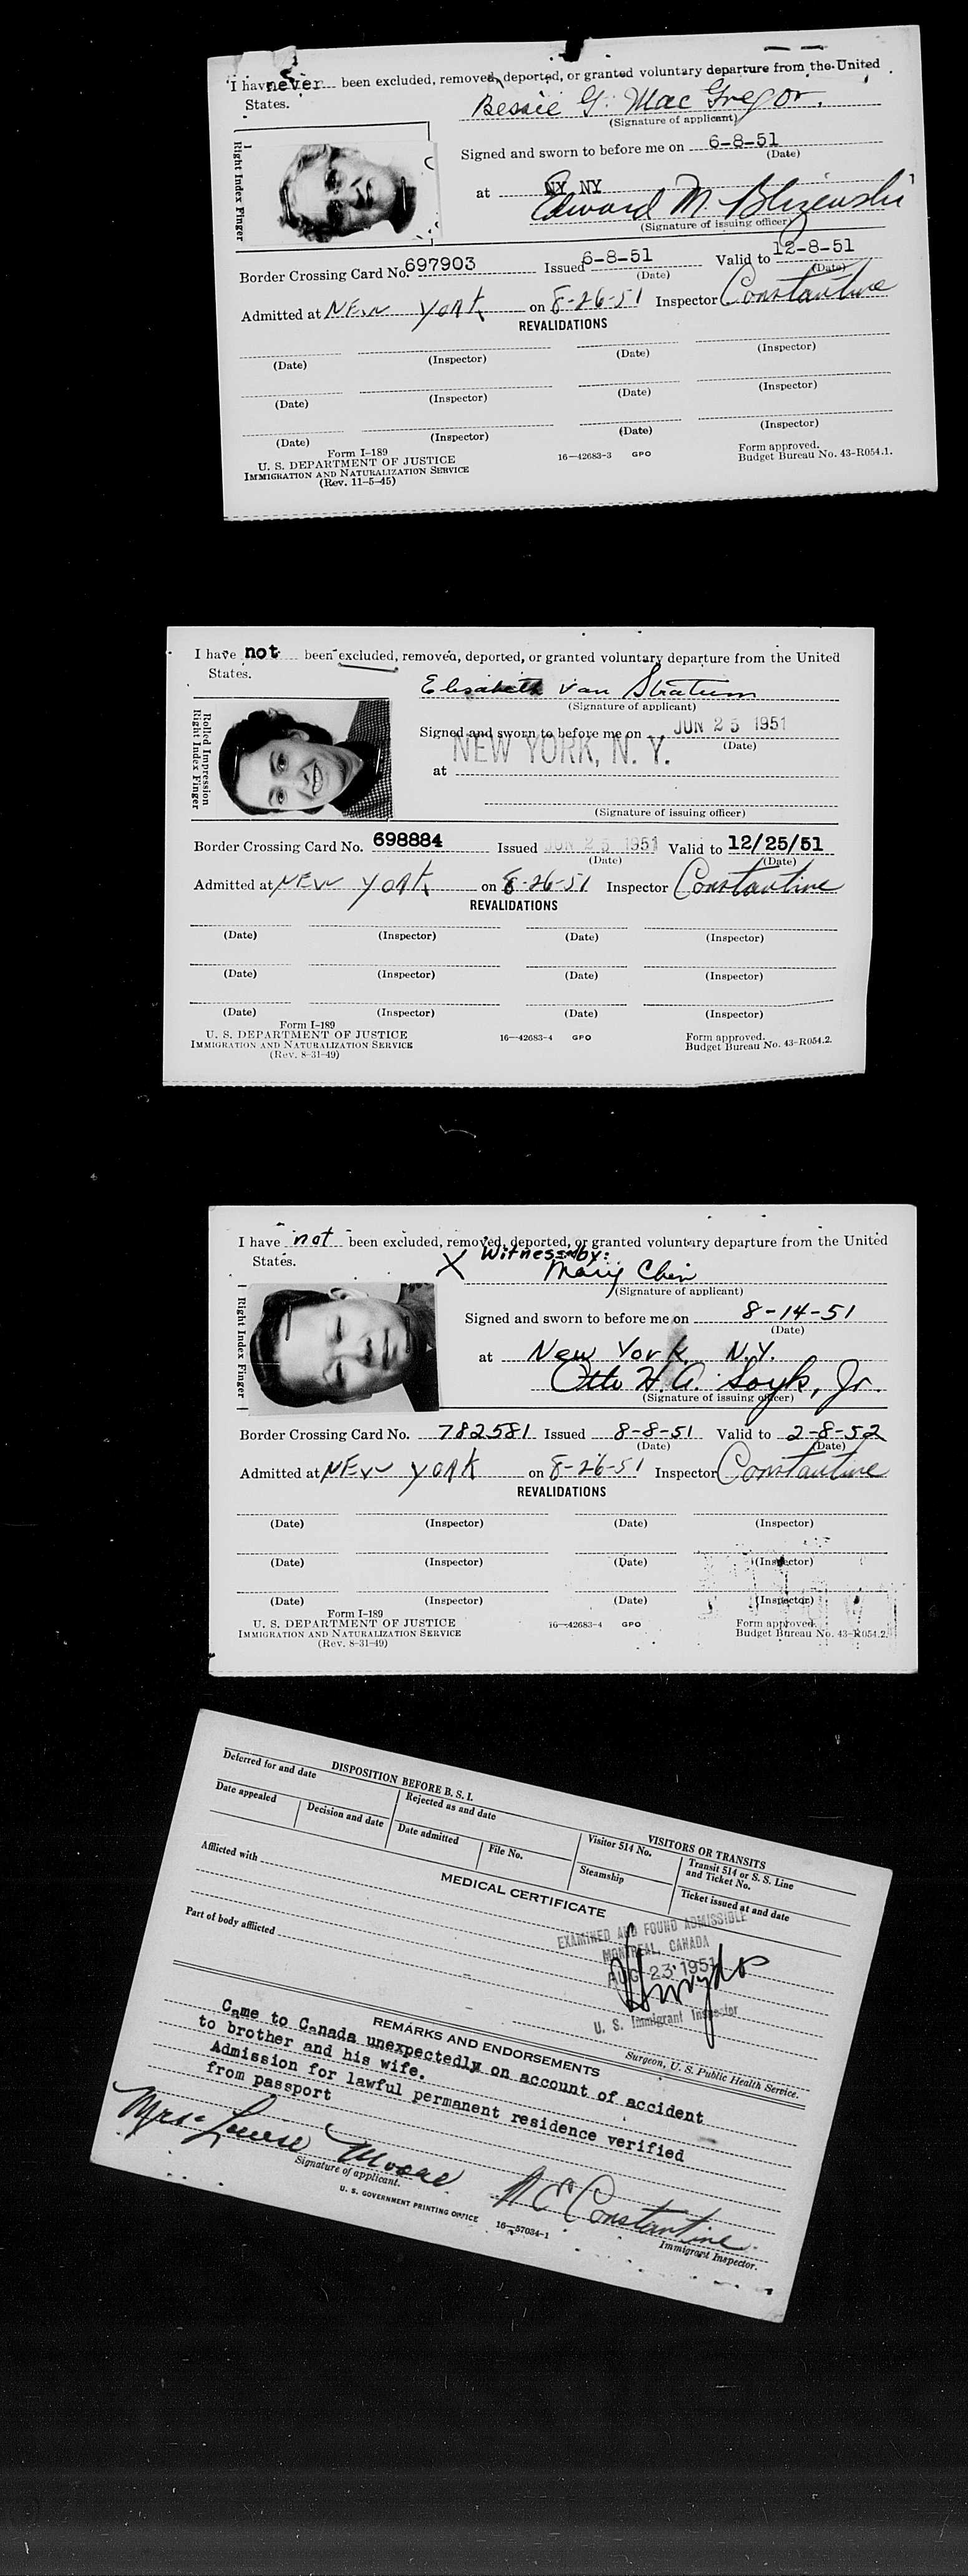 I have never been excluded, removed, deported, or granted voluntary departure from the United
States.
Bessie G. Mac Gregor.
(Signature of applicant)
Right Index Finger
Signed and sworn to before me on 6-8-51
(Date)
at NY NY
Edward M.
(Signature of issuing officer)
Border Crossing Card No. 697903 Issued 6-8-51 Valid to 12-8-51
(Date) (Date)
Admitted at NEW YORK on 8-26-51 Inspector Constantine
REVALIDATIONS
(Date) (Inspector) (Date) (Inspector)
(Date) (Inspector) (Date) (Inspector)
(Date) (Inspector) (Date) (Inspector)
Form I-189
U. S. DEPARTMENT OF JUSTICE
IMMIGRATION AND NATURALIZATION SERVICE
(Rev. 11-5-45)
16—42683-3 GPO
Form approved.
Budget Bureau No. 43-R054.1.
I have not been excluded, removed, deported, or granted voluntary departure from the United
States.
Elisabeth van Stratum
(Signature of applicant)
Rolled Impression
Right Index Finger
Signed and sworn to before me on JUN 25 1951
(Date)
at NEW YORK, N. Y.
(Signature of issuing officer)
Border Crossing Card No. 698884 Issued JUN 25 1951 Valid to 12/25/51
(Date) (Date)
Admitted at NEW YORK on 8-26-51 Inspector Constantine
REVALIDATIONS
(Date) (Inspector) (Date) (Inspector)
(Date) (Inspector) (Date) (Inspector)
(Date) (Inspector) (Date) (Inspector)
Form I-189
U. S. DEPARTMENT OF JUSTICE
IMMIGRATION AND NATURALIZATION SERVICE
(Rev. 8-31-49)
16—42683-4 GPO
Form approved.
Budget Bureau No. 43-R054.2.
I have not been excluded, removed, deported, or granted voluntary departure from the United
States.
X Witnessed by:
Mary Chin
(Signature of applicant)
Right Index Finger
Signed and sworn to before me on 8-14-51
(Date)
at New York, N.Y.
Otto H. A. Soyk, Jr.
(Signature of issuing officer)
Border Crossing Card No. 782581 Issued 8-8-51 Valid to 2-8-52
(Date) (Date)
Admitted at NEW YORK on 8-26-51 Inspector Constantine
REVALIDATIONS
(Date) (Inspector) (Date) (Inspector)
(Date) (Inspector) (Date) (Inspector)
(Date) (Inspector) (Date) (Inspector)
Form I-189
U. S. DEPARTMENT OF JUSTICE
IMMIGRATION AND NATURALIZATION SERVICE
(Rev. 8-31-49)
16—42683-4 GPO
Form approved.
Budget Bureau No. 43-R054.2.
DISPOSITION BEFORE B. S. I.
VISITORS OR TRANSITS
Deferred for and date
Rejected as and date
Visitor 514 No.
Transit 514 or S. S. Line
and Ticket No.
Date appealed
Decision and date
Date admitted
File No.
Steamship
Ticket issued at and date
MEDICAL CERTIFICATE
Afflicted with
Part of body afflicted
EXAMINED AND FOUND ADMISSIBLE
MONTREAL, CANADA
AUG 23 1951
U. S. Immigrant Inspector
Surgeon, U. S. Public Health Service.
REMARKS AND ENDORSEMENTS
Came to Canada unexpectedly on account of accident
to brother and his wife.
Admission for lawful permanent residence verified
from passport
Mrs. Louise Moore
Signature of applicant.
N C Constantine
Immigrant Inspector.
U. S. GOVERNMENT PRINTING OFFICE 16—57034-1